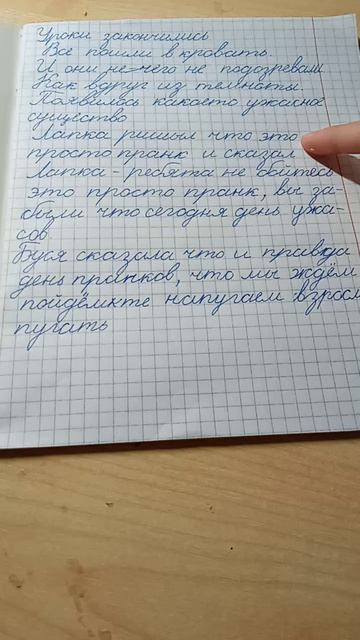 Уроки закончились
Все пошли в кровать.
И они не чего не подозревали
Как вдруг из темноты.
Появилось какоето ужасное
существо
Лапка ришыл что это
просто пранк и сказал
Лапка - ребята не бойтесь
это просто пранк, вы за-
были что сегодня день ужа-
сов
Буся сказала что и правда
день пранков, что мы ждём
пойдёмкте напугаем взросл
пугать